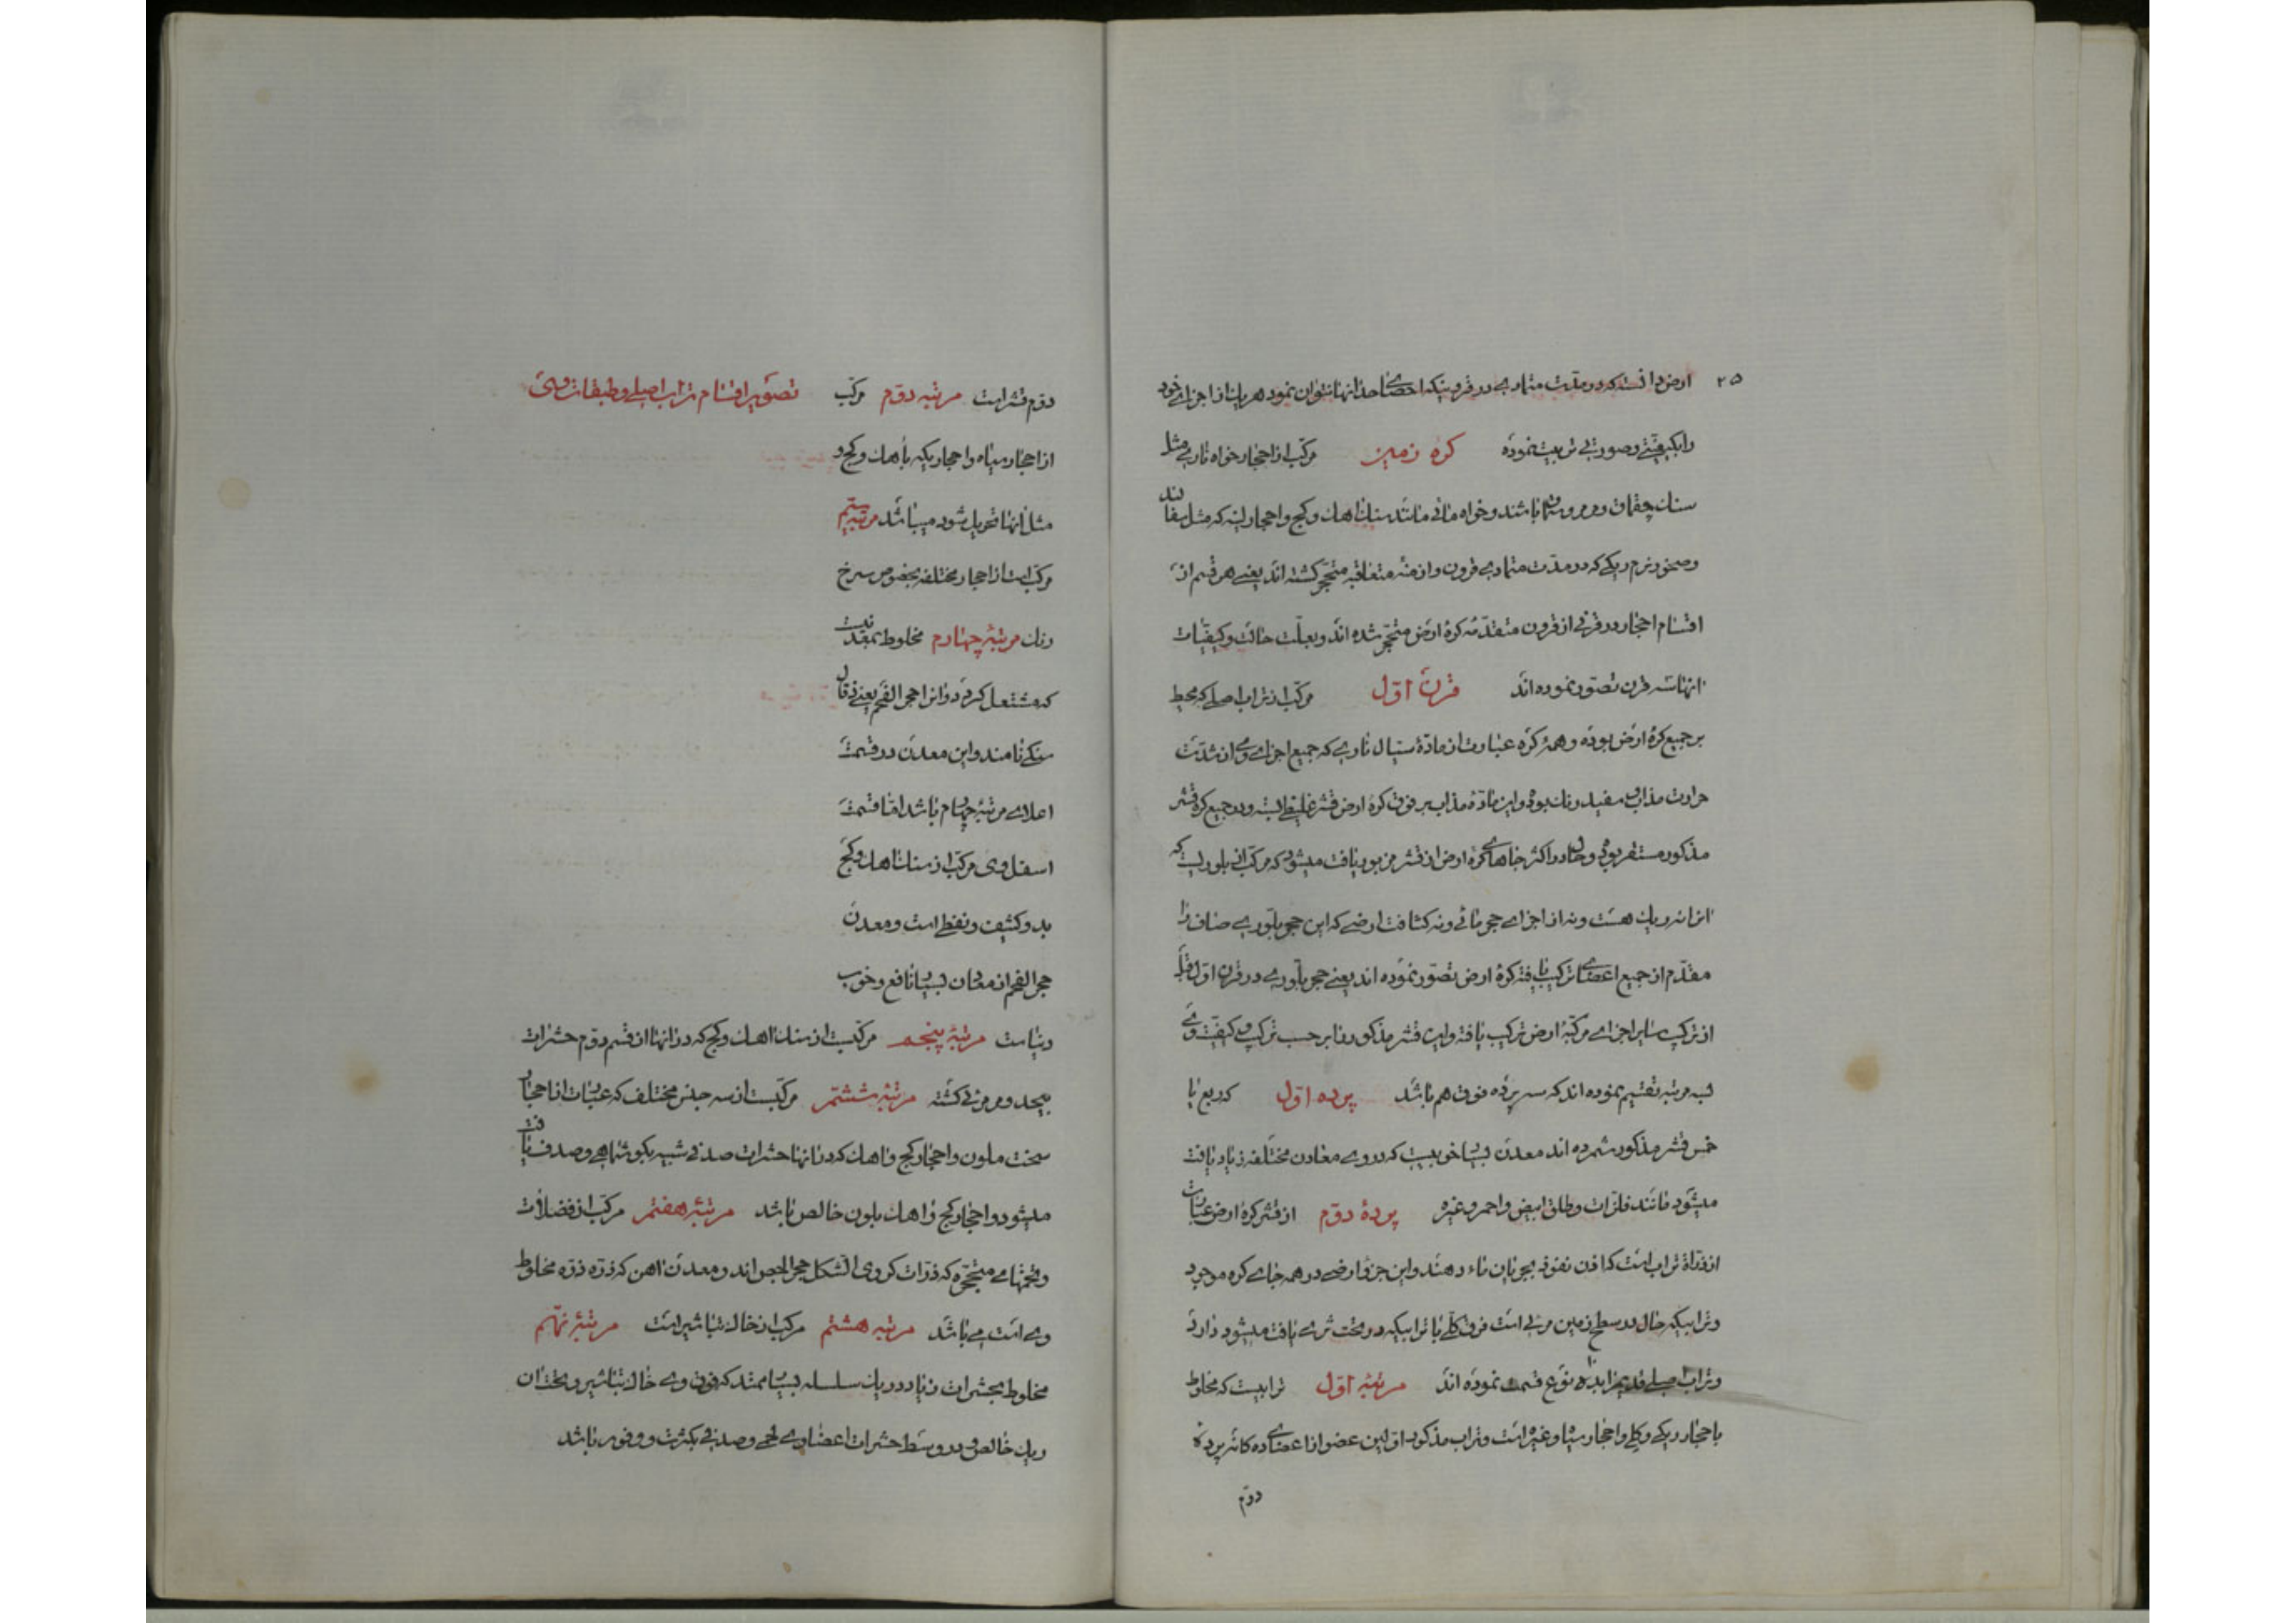 ۲۵
ارض دانسته که در مدّت متمادی در قرونیکه احصای احدا نها نتوان نمود هر یک از اجزای خود
را بکیفیّتی و صورتی تربیت نموده کرهٔ زمین مرکّب از احجار خواه ناری مثل
سنک چقماق و مرمر و سماق باشند و خواه مائی مانند سنک اهک و کچ و احجار لینه که مثل سفال اند
و صخور نرم ریکی که در مدّت متمادی قرون و ازمنهٔ متعاقبه متحجّر کشته اند یعنی هر قسم از
اقسام احجار در قرنی از قرون متقدّمهٔ کرهٔ ارض متحجّر شده اند و بعلّت حالت و کیفیّات
انها سه قرن تصوّر نموده اند قرن اوّل مرکّب از تراب اصلی که محیط
بر جمیع کرهٔ ارض بوده و همهٔ کره عبارت از مادّهٔ سیّال ناری که جمیع اجزای وی از شدّت
حرارت مذاب و سفید رنک بوده و این مادّهٔ مذاب بر فوق کرهٔ ارض قشر غلیظی بسته و در جمیع کره قشر
مذکور مستقر بوده و حال در اکثر جاهای کرهٔ ارض از قشر مزبور یافت میشود که مرکّب از بلوریست که
در ان نه ریک هست و نه از اجزای حجر مائی و نه کثافت ارضی که این حجر بلّوری صاف را
مقدّم از جمیع اعضای ترکیب یافتهٔ کرهٔ ارض تصوّر نموده اند یعنی حجر بلّوری در قرن اوّل قبل
از ترکیب سایر اجزای مرکبّهٔ ارض ترکیب یافته و این قشر مذکور را بر حسب ترکیب و کیفیّت وی
بسه مرتبه تقسیم نموده اند که سه پرده فوق هم باشد پرده اوّل که ربع یا
خمس قشر مذکور شمرده اند معدن بسیار خوبیست که در وی معادن مختلفه زیاد یافت
میشود مانند فلزّات و طلق ابیض و احمر و غیره پردهٔ دوّم از قشر کرهٔ ارض عبارت
از تراب است که اذن نفوذ بجریان ماء دهند و این جزو ارضی در همه جای کره موجود
و ترابیکه حال در سطح زمین مرئی است فرق کلّی با ترابیکه در تحت ثری یافت میشود دارد
و تراب اصلی قدیم را بده نوع قسمت نموده اند مرتبهٔ اوّل ترابیست که مخلوط
با حجار ریکی و کلی و احجار سیاه و غیره است و تراب مذکور اوّلین عضو از اعضای ده کانهٔ پردهٔ
دوّم
دوّم قشر است مرتبه دوّم مرکّب تصویر اقسام تراب اصلی و طبقات وی
از احجار سیاه و احجاریکه باهک و کچ و
مثل انها تحویل شود میباشد مرتبه سیّم
مرکب است از احجار مختلفه بخصوص سرخ
رنک مرتبهٔ چهارم مخلوط بمعدنیست
که مشتعل کردد و انرا حجر الفحم یعنی ذغال
سنکی نامند و این معدن در قسمت
اعلای مرتبهٔ چهارم باشد امّا قسمت
اسفل وی مرکّب از سنک اهک و کچ
بد و کثیف و نفطی است و معدن
حجر الفحم از معادن بسیار نافع و خوب
دنیاست مرتبهٔ پنجم مرکّبست از سنک اهک و کچ که در انها از قسم دوّم حشرات
بیحد و مر مرئی کشته مرتبهٔ ششم مرکّبست از سه جنس مختلف که عبارت از احجار
سخت ملون و احجار کچ و اهک که در انها حشرات صدفی شبیه بکوش ماهی و صدف یافت
میشود و احجار کچ و اهک بلون خالص باشد مرتبهٔ هفتم مرکّب از فضلات
و تخمهای متحجّره که ذرّات کروی الشکل حجر الجص اند و معدن اهن که ذرّه ذرّه مخلوط
وی است می باشد مرتبه هشتم مرکب از خاک تباشیر است مرتبهٔ نهم
مخلوط بحشرات زیاد در یک سلسله بسیار ممتد که فوق وی خاک تباشیر و تحت ان
ریک خالص و در وسط حشرات اعضاوی لحمی و صدفی بکثرت و وفور باشد